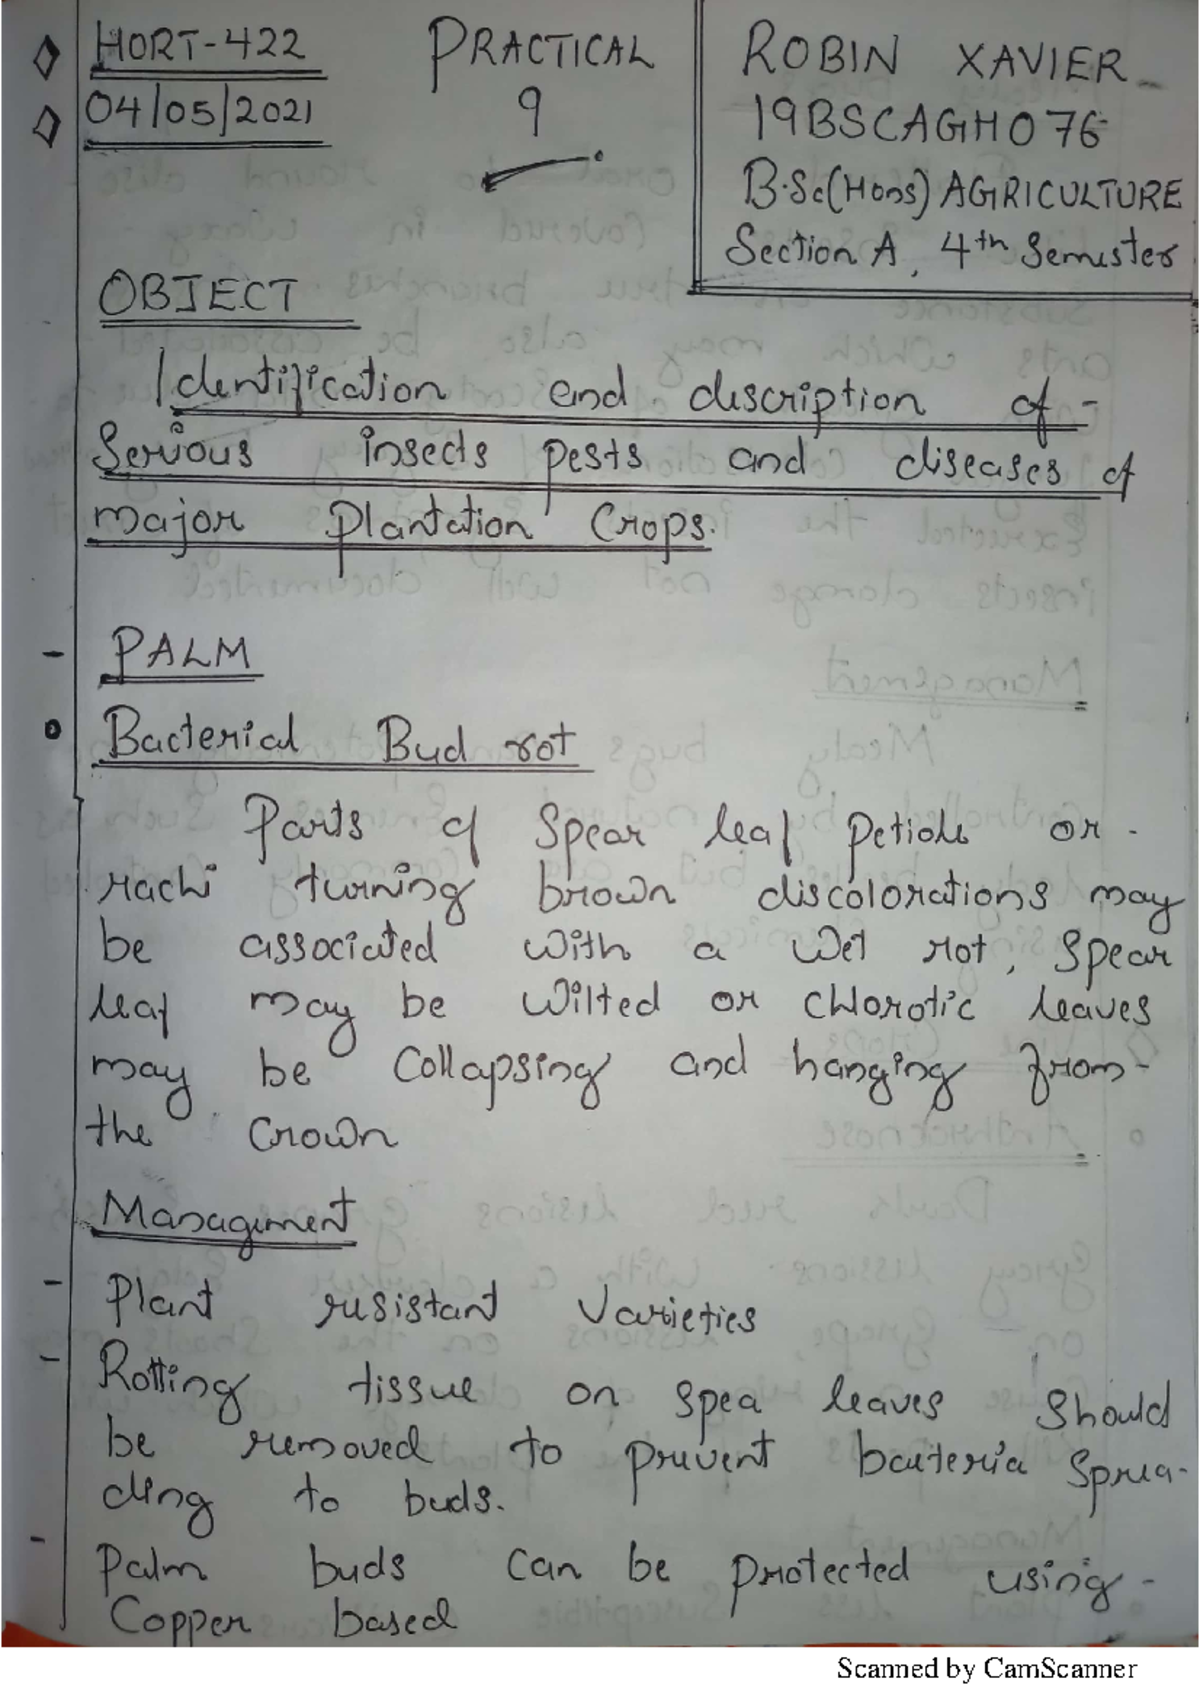 HORT-422
04/05/2021
PRACTICAL
9
ROBIN XAVIER
19BSCAGH076
B.Sc(Hons) AGRICULTURE
Section A, 4th Semester
OBJECT
Identification and discription of -
Serious insects pests and diseases of
major Plantation Crops.
- PALM
Bacterial Bud rot
Parts of Spear leaf Petiole or -
rachi turning brown discolorations may
be associated with a wet rot, Spear
leaf may be wilted or chlorotic leaves
may be Collapsing and hanging from -
the Crown
Management
- Plant resistant Varieties
- Rotting tissue on spea leaves should
be removed to prevent bacteria Sprea-
ding to buds.
- Palm buds can be protected using -
Copper based
Scanned by CamScanner